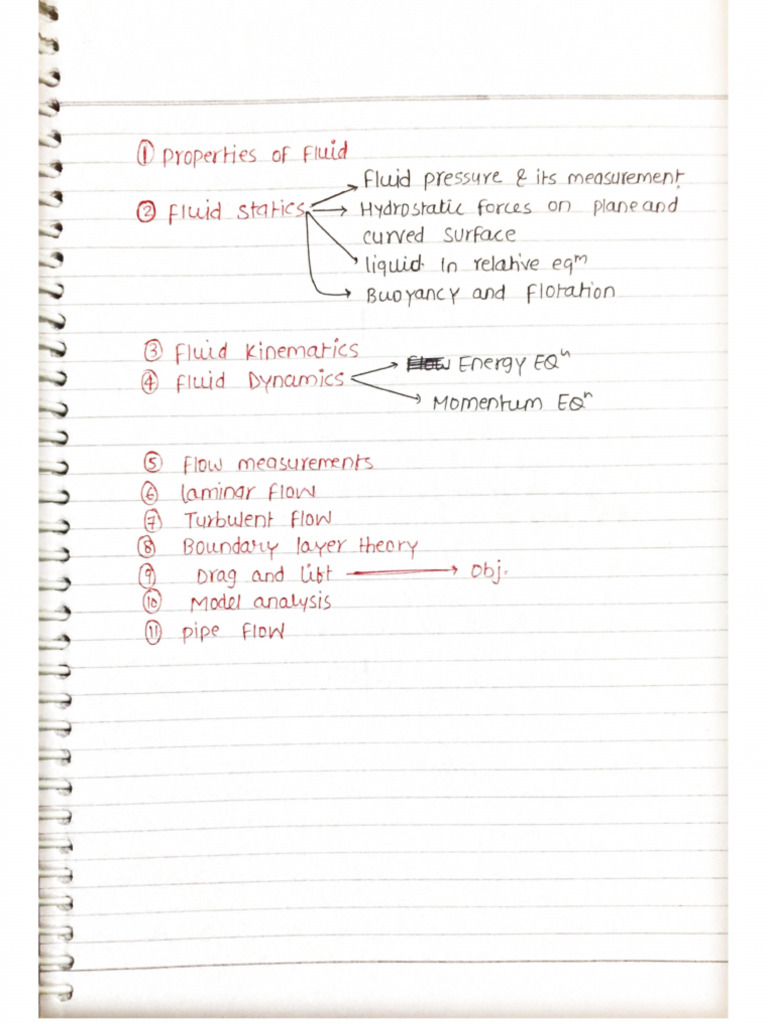 ① Properties of Fluid
Fluid pressure & its measurement
② Fluid Statics
Hydrostatic forces on plane and
curved surface
liquid in relative eqᵐ
Buoyancy and Flotation
③ Fluid Kinematics
④ Fluid Dynamics
Energy EQⁿ
Momentum EQⁿ
⑤ Flow measurements
⑥ Laminar flow
⑦ Turbulent flow
⑧ Boundary layer theory
⑨ Drag and lift → Obj.
⑩ Model analysis
⑪ pipe flow